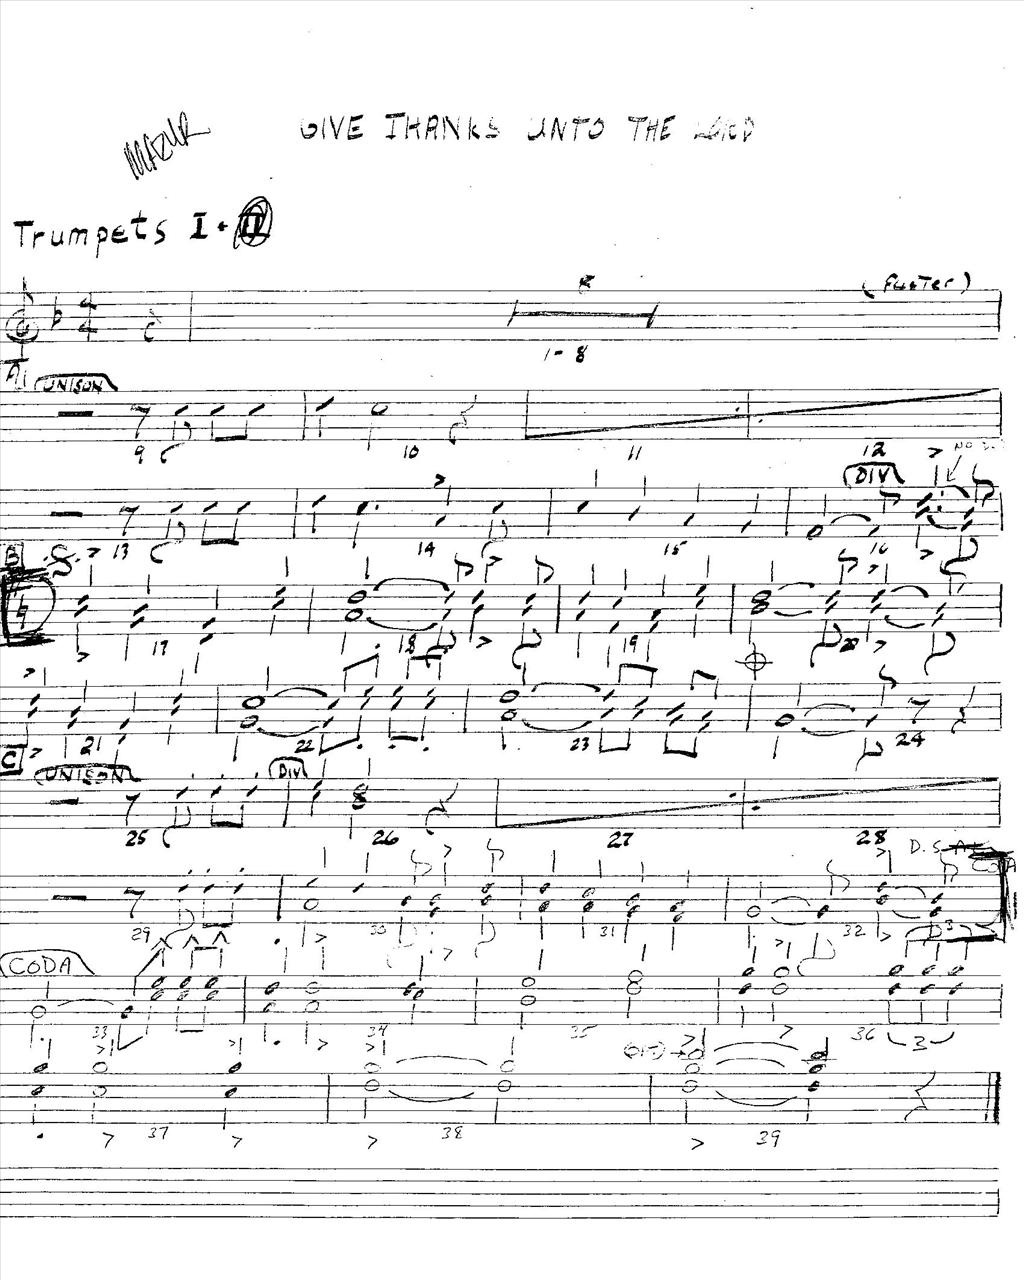 GIVE THANKS UNTO THE LORD
MAZUR
Trumpets I + II
(FASTER)
1-8
A
UNISON
9 10 11 12
DIV
NO
13 14 15 16
B
17 18 19 20
21 22 23 24
C
UNISON DIV
25 26 27 28
D.S. AL CODA
29 30 31 32
3
CODA
33 34 35 36
3
37 38 39